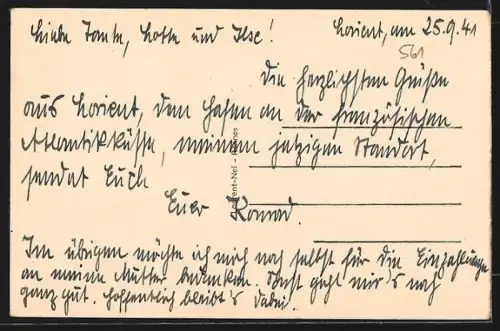 Liebe Tante, Lotte und Ilse! Lorient, am 25.9.41
561
Die herzlichsten Grüße
aus Lorient, dem Hafen an der französischen
Atlantikküste, meinem jetzigen Standort,
sendet Euch
Euer Konrad.
Im übrigen möchte ich mich noch selbst für die Einzahlung
an meine Mutter bedanken. Sonst geht mir's noch
ganz gut. Hoffentlich bleibt's dabei.